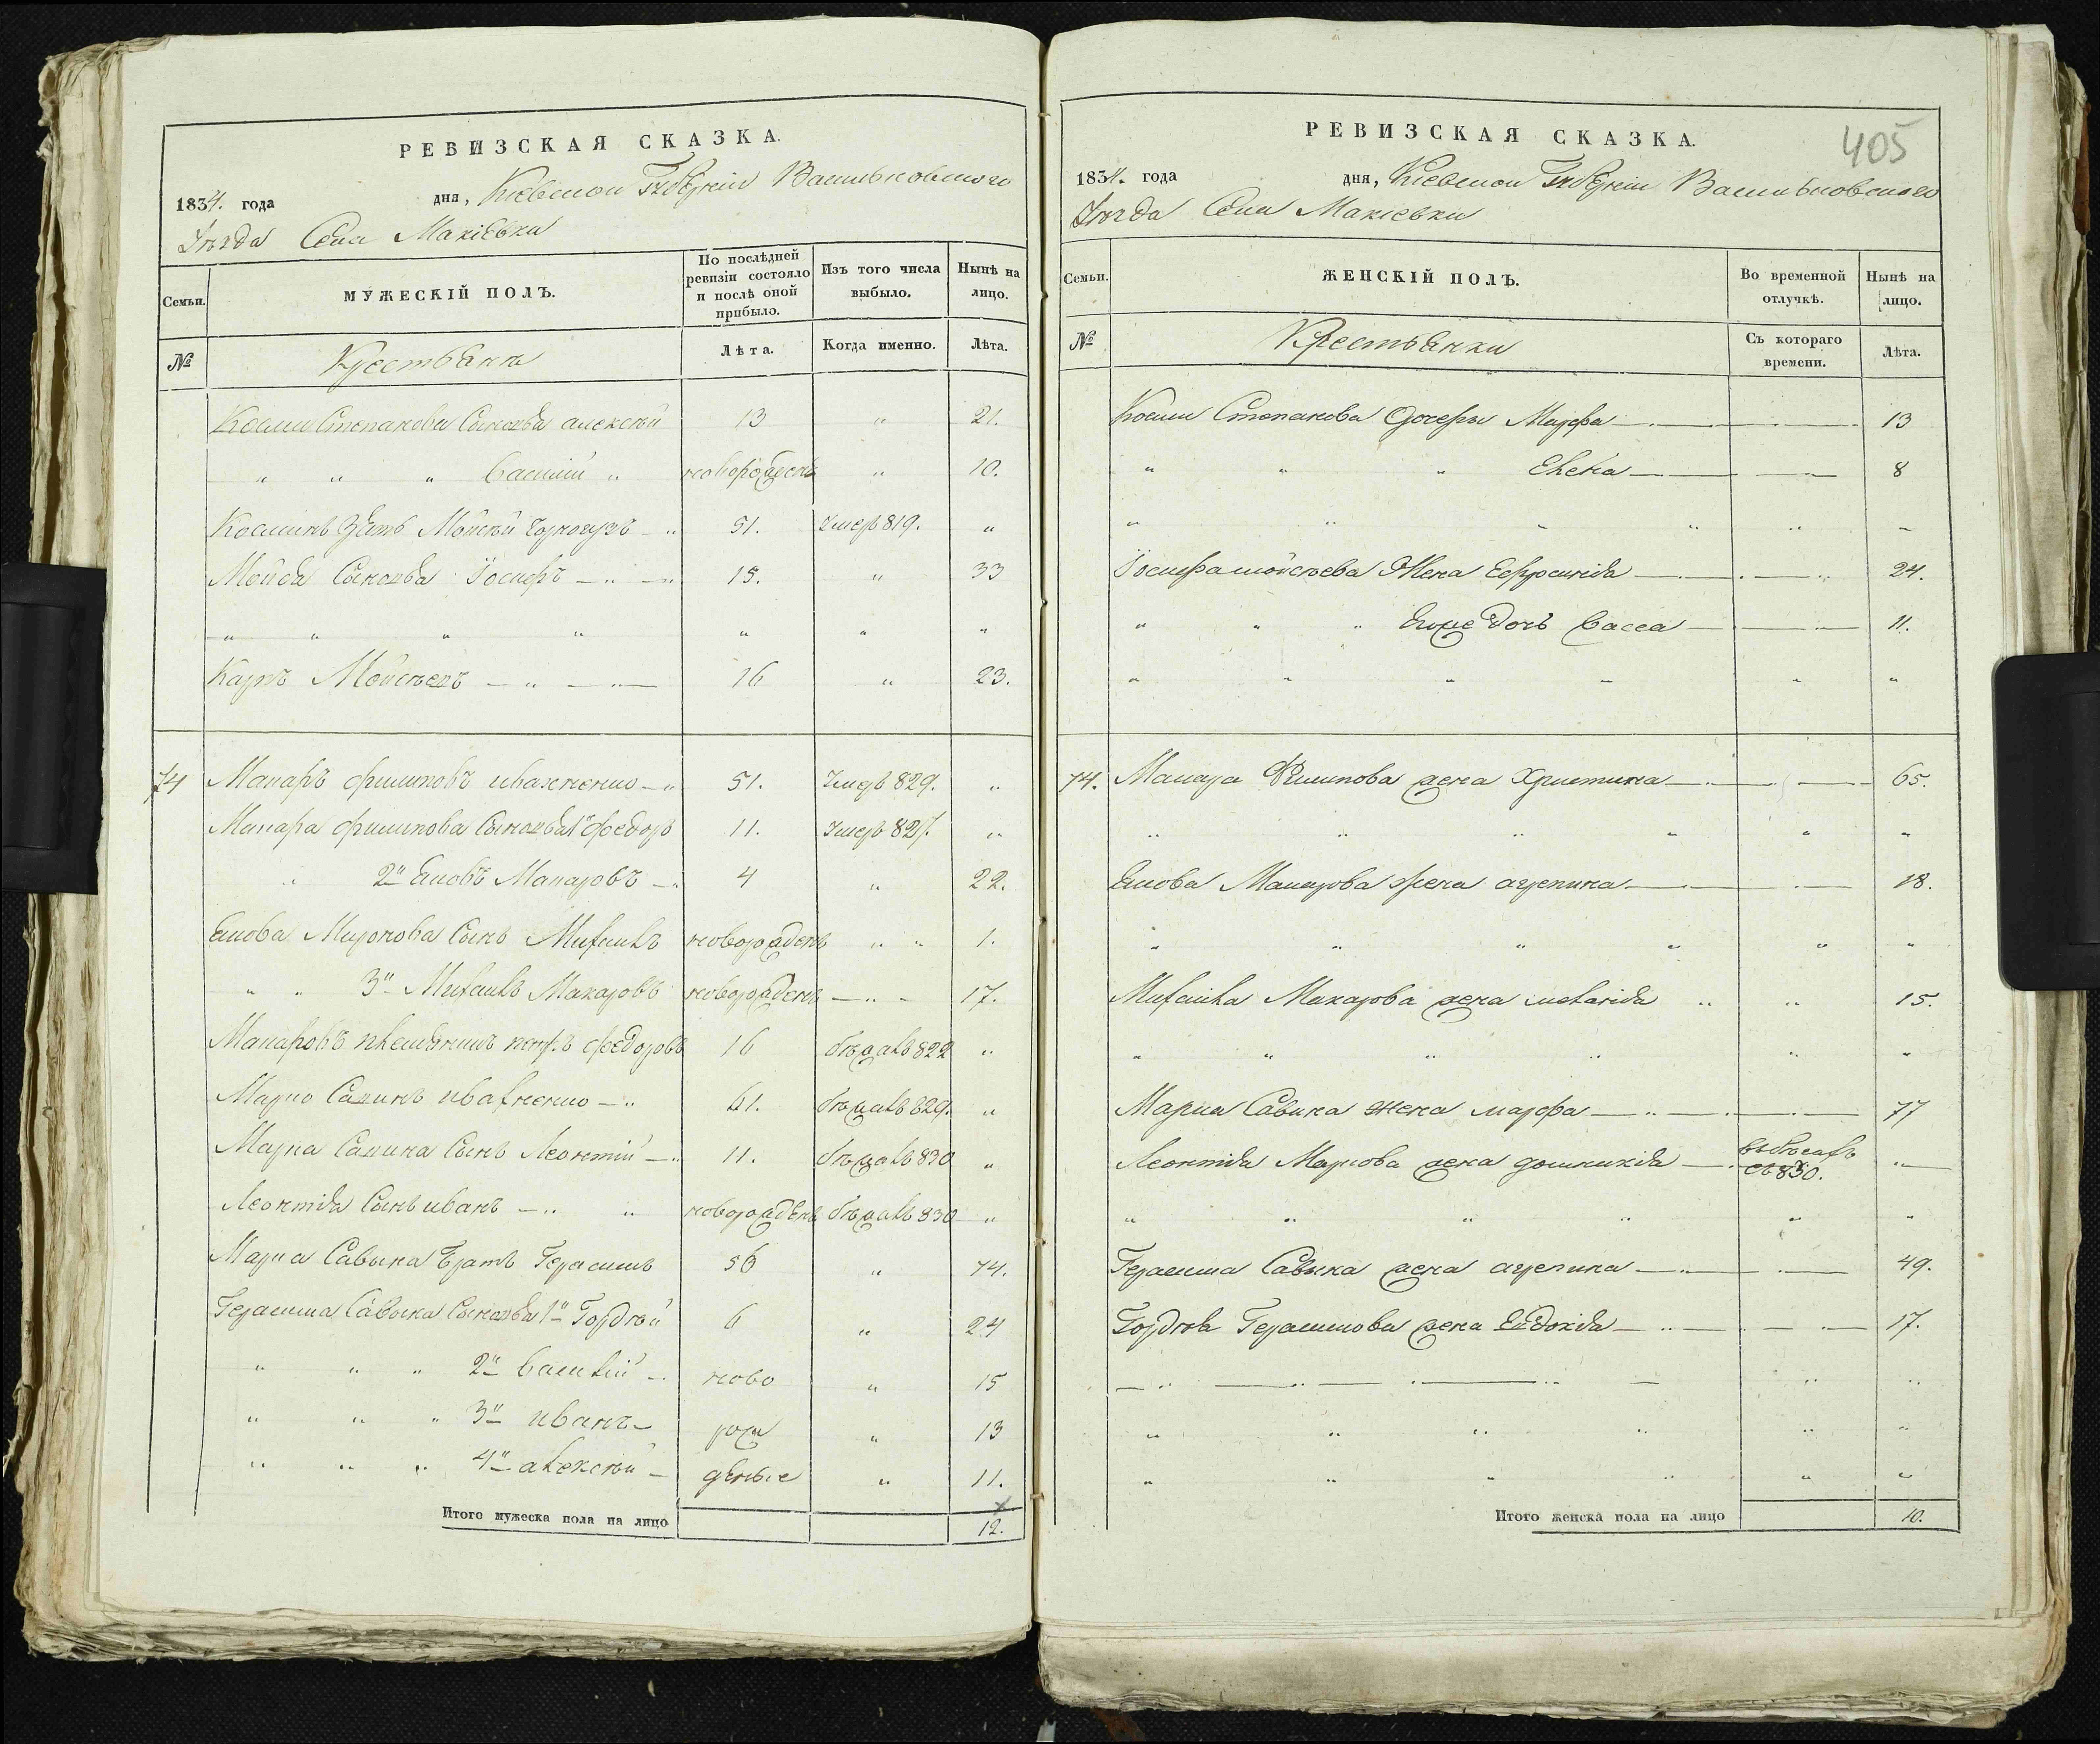 РЕВИЗСКАЯ СКАЗКА.
1834. года дня, Кіевской Губерніи Васильковского
Уѣзда Села Макіевки
Семьи. МУЖЕСКІЙ ПОЛЪ. По послѣдней ревизіи состояло и послѣ оной прибыло. Изъ того числа выбыло. Нынѣ на лицо.
№ Крестьяне Лѣта. Когда именно. Лѣта.
Косми Степанова Сыновья алексѣй 13 " 21.
" " " Василій " новорожденъ " 10.
Косминъ Зять Мойсѣй 51. Умеръ 819. "
Мойсѣя Сыновья Іосифъ 15. " 33
" " " " " " "
Карпъ Мойсѣевъ 16 " 23.
74 Макаръ филиповъ ивахненко 51. Умеръ 829. "
Макара филипова Сыновья 1й федоръ 11. Умеръ 827. "
" 2й Яковъ Макаровъ 4 " 22.
Якова Миронова Сынъ Михаилъ новорожденъ " " 1.
" " 3й Михаилъ Макаровъ новорожденъ " 17.
Макаровъ племянникъ петръ федоровъ 16 бѣжалъ 822 "
Марко Савинъ ивахненко 61. бѣжалъ 829. "
Марка Савина Сынъ Леонтій 11. бѣжалъ 830 "
Леонтія Сынъ иванъ " новорожденъ бѣжалъ 830 "
Марка Савина Братъ Герасимъ 56 " 74.
Герасима Савина Сыновья 1й Гордѣй 6 " 24
" " " 2й Василій ново " 15
" " " 3й иванъ рож " 13
" " " 4й алексѣй деные " 11.
Итого мужеска пола на лицо 12.
405
РЕВИЗСКАЯ СКАЗКА.
1834. года дня, Кіевской Губерніи Васильковского
Уѣзда Села Макіевки
Семьи. ЖЕНСКІЙ ПОЛЪ. Во временной отлучкѣ. Нынѣ на лицо.
№ Крестьянки Съ котораго времени. Лѣта.
Косми Степанова Дочери Марфа 13
" " " Елена 8
" " " " " "
Іосифа мойсѣева Жена Ефросинія 24.
" " " Егоже Дочь Васса 11.
" " " " " "
74. Макара Филипова жена Христина 65.
" " " " " "
Якова Макарова жена агрепина 18.
" " " " " "
Михаила Макарова жена меланія " " 15.
" " " " " "
Марка Савина жена марфа 77
Леонтія Маркова жена доминикія въ бѣгахъ съ 830. "
" " " " " "
Герасима Савина жена агрепина 49.
Гордѣя Герасимова жена Евдокія 17.
" " " "
" " " " " "
" " " " " "
Итого женска пола на лицо 10.